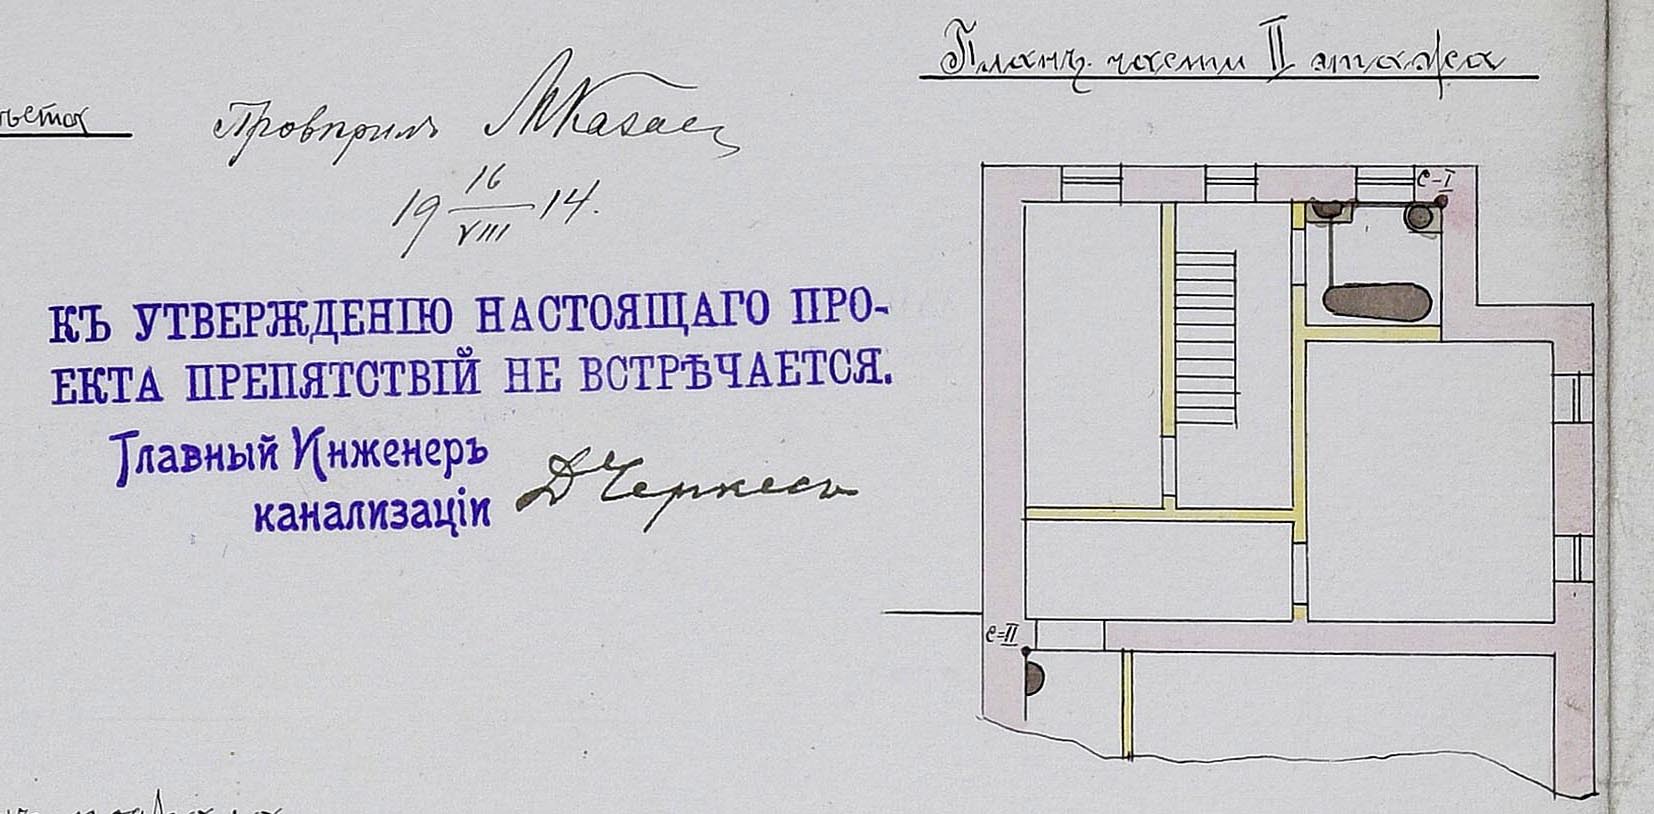 Планъ части II этажа
Провѣрилъ
19 16/VIII 14.
КЪ УТВЕРЖДЕНІЮ НАСТОЯЩАГО ПРО-
ЕКТА ПРЕПЯТСТВІЙ НЕ ВСТРѢЧАЕТСЯ.
Главный Инженеръ
канализаціи
Д Черкесъ
С-I
С-II